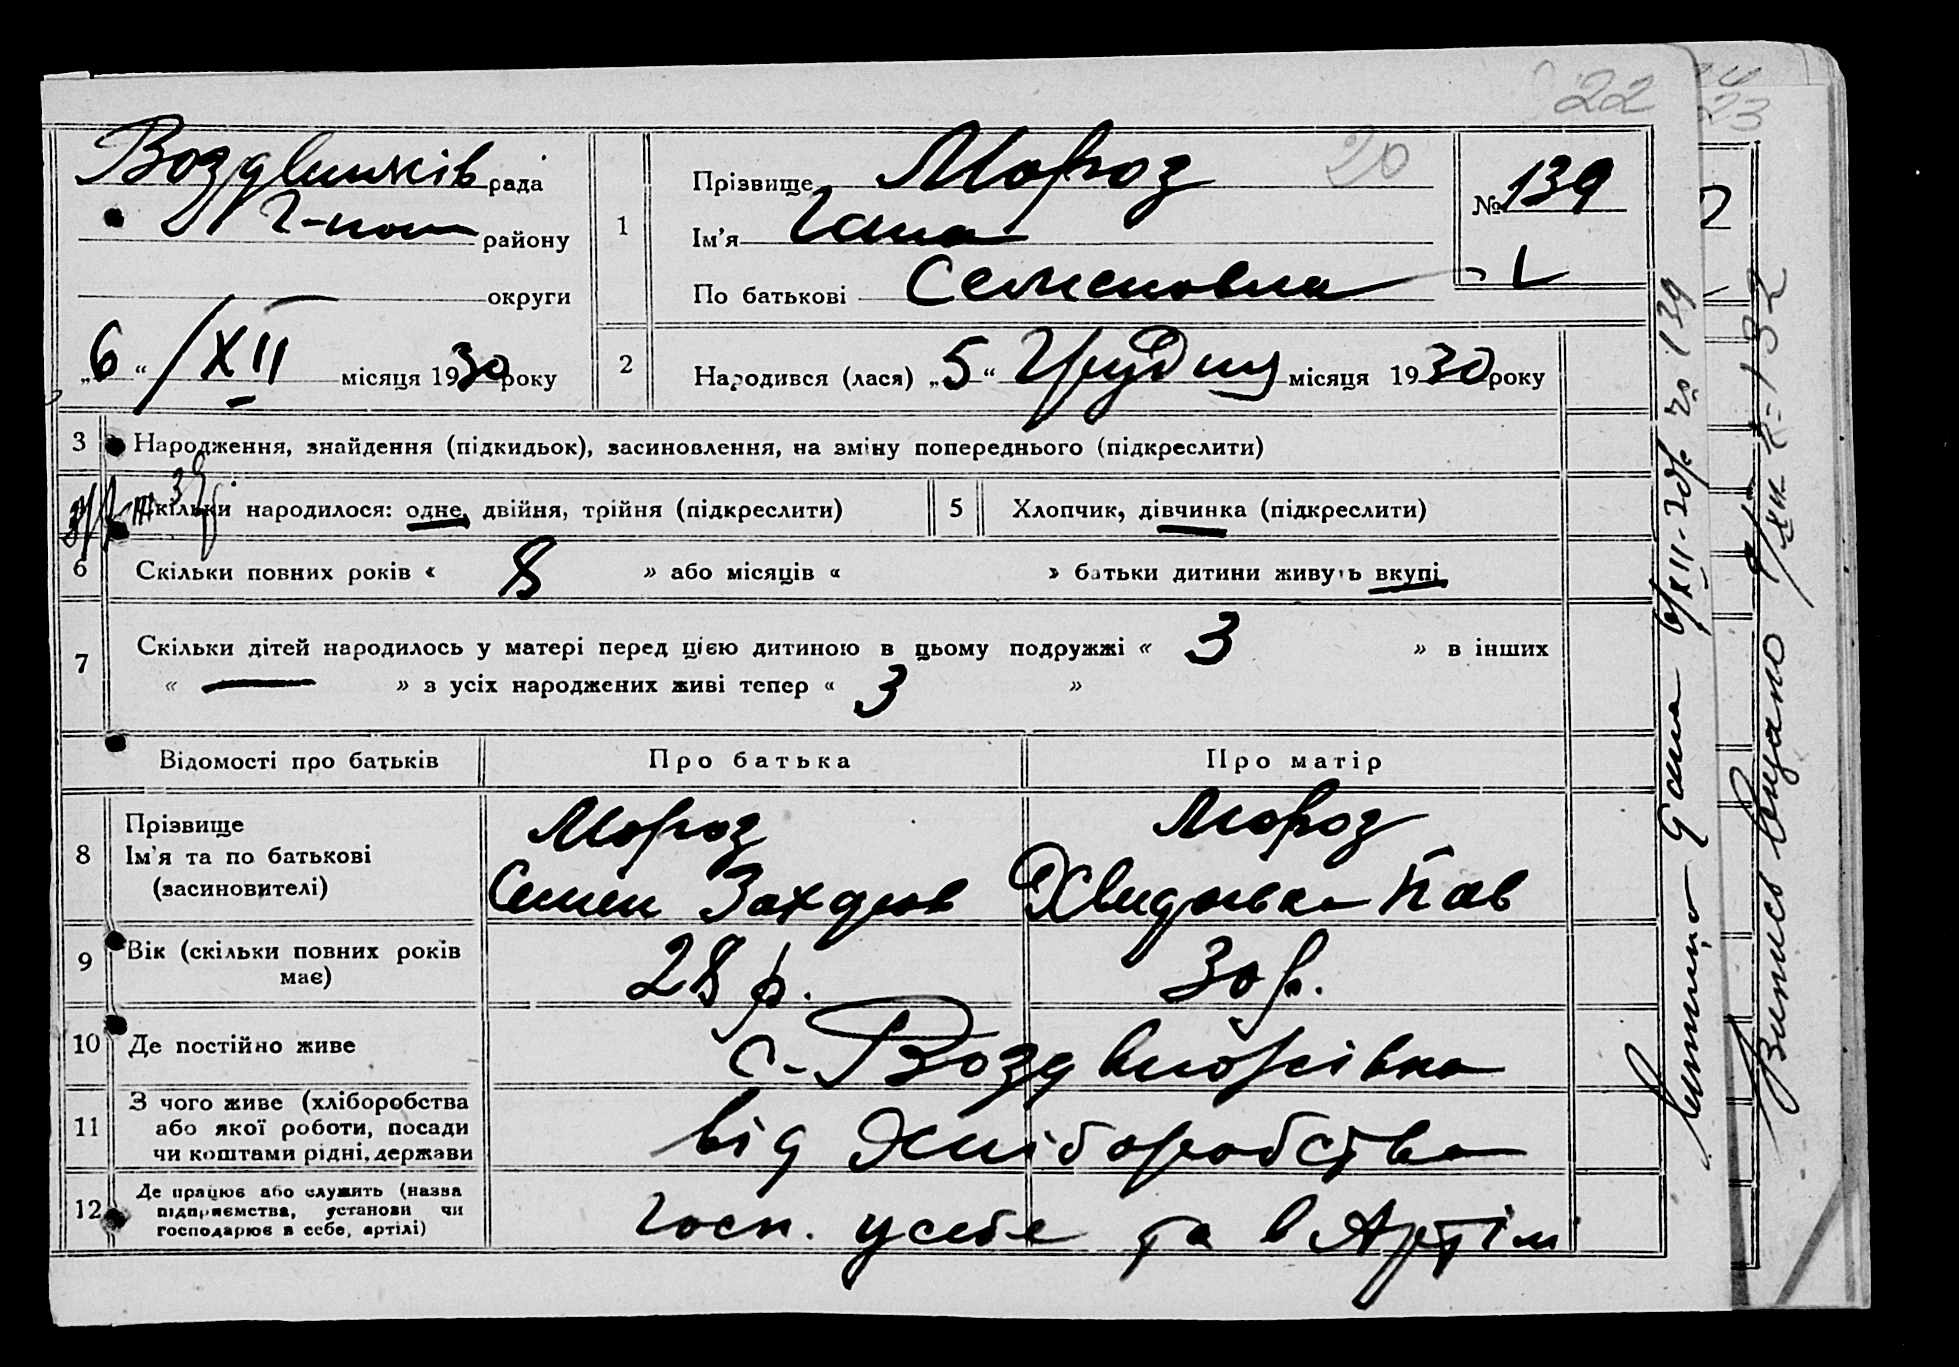 22
23
20
Воздвижків рада
району
округи
„6“ /XII місяця 1930 року
1
Прізвище Мороз
Ім’я Гана
По батькові Семеновна
№ 139
2
Народився (лася) „5“ Грудня місяця 1930 року
3 Народження, знайдення (підкидьок), засиновлення, на зміну попереднього (підкреслити)
Скільки народилося: одне, двійня, трійня (підкреслити)
5 Хлопчик, дівчинка (підкреслити)
6 Скільки повних років « 8 » або місяців « » батьки дитини живуть вкупі
7 Скільки дітей народилось у матері перед цією дитиною в цьому подружжі « 3 » в інших
« — » з усіх народжених живі тепер « 3 »
Відомості про батьків Про батька Про матір
8 Прізвище
Ім’я та по батькові
(засиновителі)
Мороз
Семен
Мороз
Пав
9 Вік (скільки повних років
має)
28 р.
30 р.
10 Де постійно живе с. Воздвиж­івка
11 З чого живе (хліборобства
або якої роботи, посади
чи коштами рідні, держави
від Хліборобства
12 Де працює або служить (назва
підприємства, установи чи
господарює в себе, артілі)
Госп. у себе та в Артілі
Гана 6/XII-30р. 139
Витись видано 9/XII 132